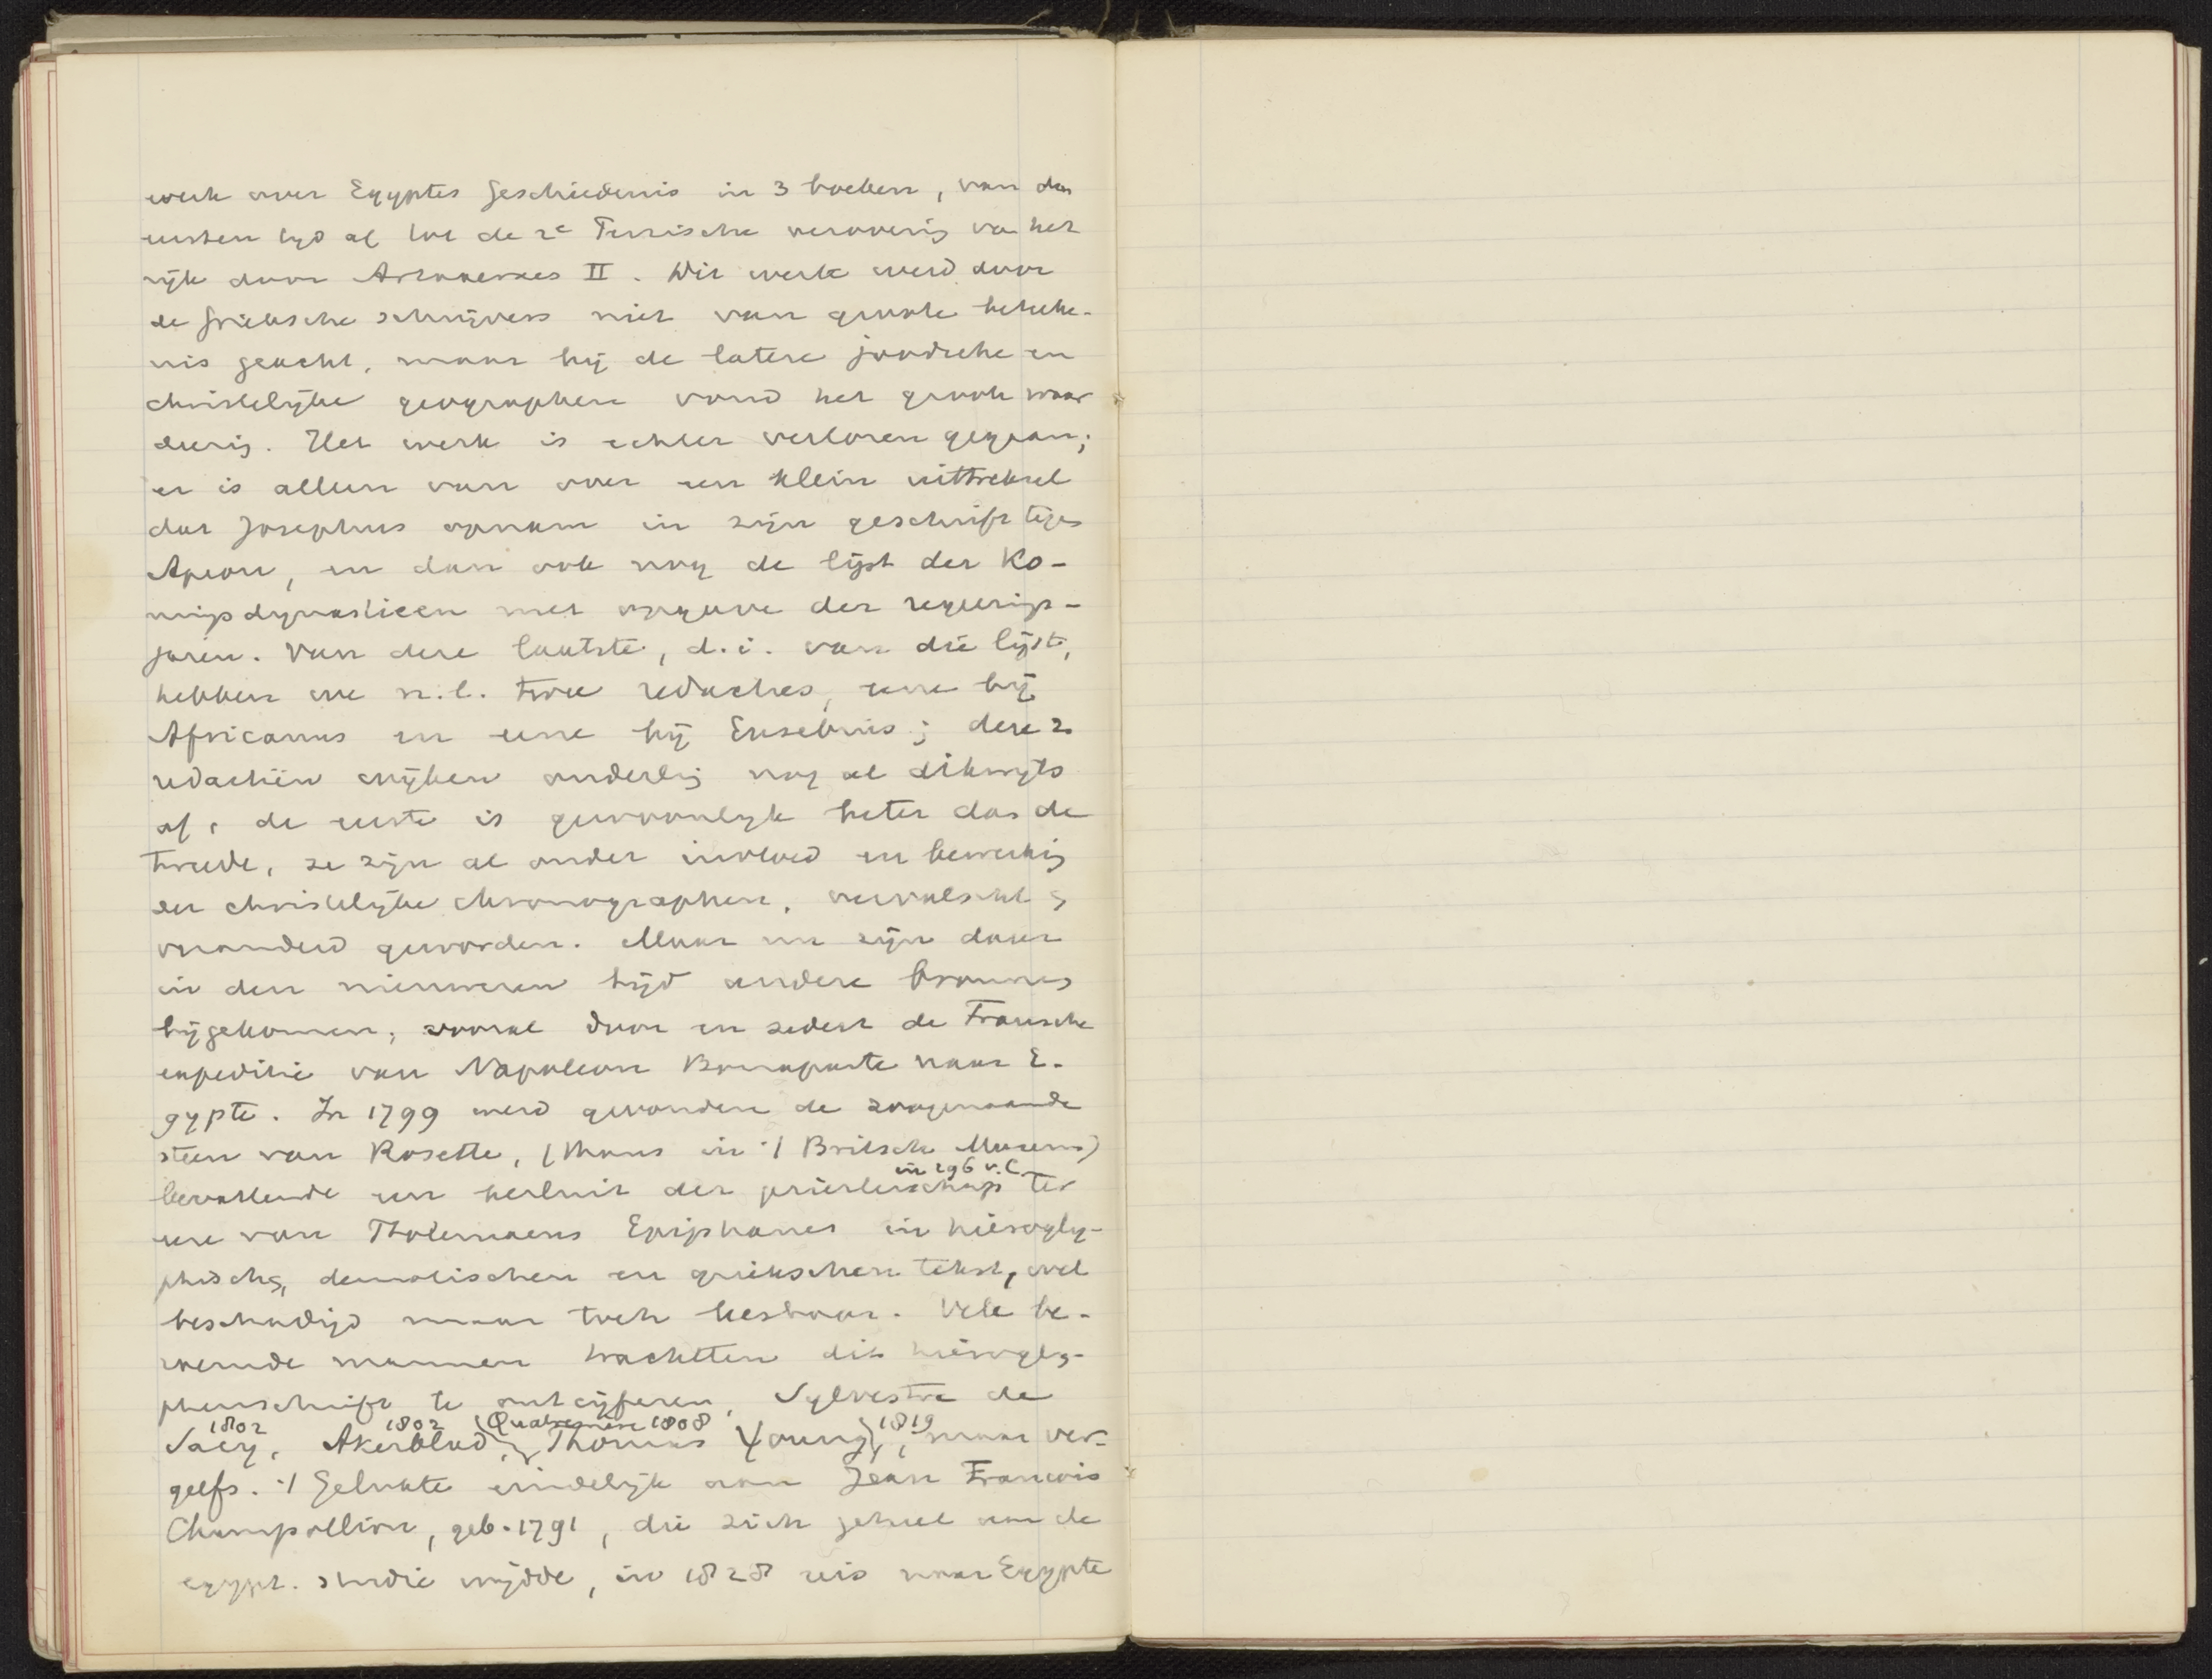 werk over Egyptes Geschiedenis in 3 boeken, van den
eersten tijd af tot de 2e Perzische verovering van het
rijk door Artaxerxes II. Dit werk werd door
de Grieksche schrijvers niet van groote beteeke-
nis geacht, maar bij de latere joodsche en
christelijke geographen vond het groote waar
deering. Het werk is echter verloren gegaan;
er is alleen van over een klein uittreksel
dat Josephus opnam in zijn geschrift tegen
Apeon, en dan ook nog de lijst der Ko-
ningsdynastieën met opgave der regeerings-
jaren. Van deze laatste, d.i. van die lijst,
hebben we n.l. twee redacties, eene bij
Africanus en eene bij Eusebius; deze 2
redactiën wijken onderling nog al dikwijls
af, de eerste is gewoonlijk beter dan de
tweede, ze zijn al onder invloed en bewerking
der christelijke chronographen, vervalscht &
veranderd geworden. Maar nu zijn daar
in den nieuweren tijd andere bronnen
bijgekomen, vooral door en sedert de Fransche
expeditie van Napoleon Bonaparte naar E-
gypte. In 1799 werd gevonden de zoogenaamde
steen van Rosette, (thans in 't Britsch Museum)
in 196 v.C.
bevattende een besluit der priesterschap ter
eere van Ptolemaeus Epiphanes in hierogly-
phischen, demotischen en griekschen tekst, wel
beschadigd maar toch leesbaar. Vele be-
roemde mannen trachtten dit hierogly-
phenschrift te ontcijferen, Sylvestre de
1802 1802 (Quatremère 1808 1819
Sacy, Akerblad, Thomas Young, maar ver-
geefs. 't Gelukte eindelijk aan Jean Francois
Champollion, geb. 1791, die zich geheel aan de
egypt. studie wijdde, in 1828 reis naar Egypte